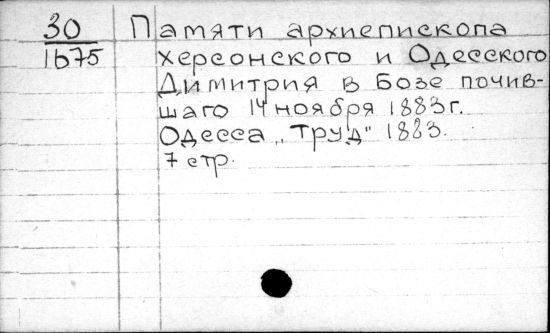 30 Памяти архиепископа
1675 Херсонского и Одесского
Димитрия в Бозе почив-
шаго 14 ноября 1883 г.
Одесса „Труд" 1883.
7 стр.